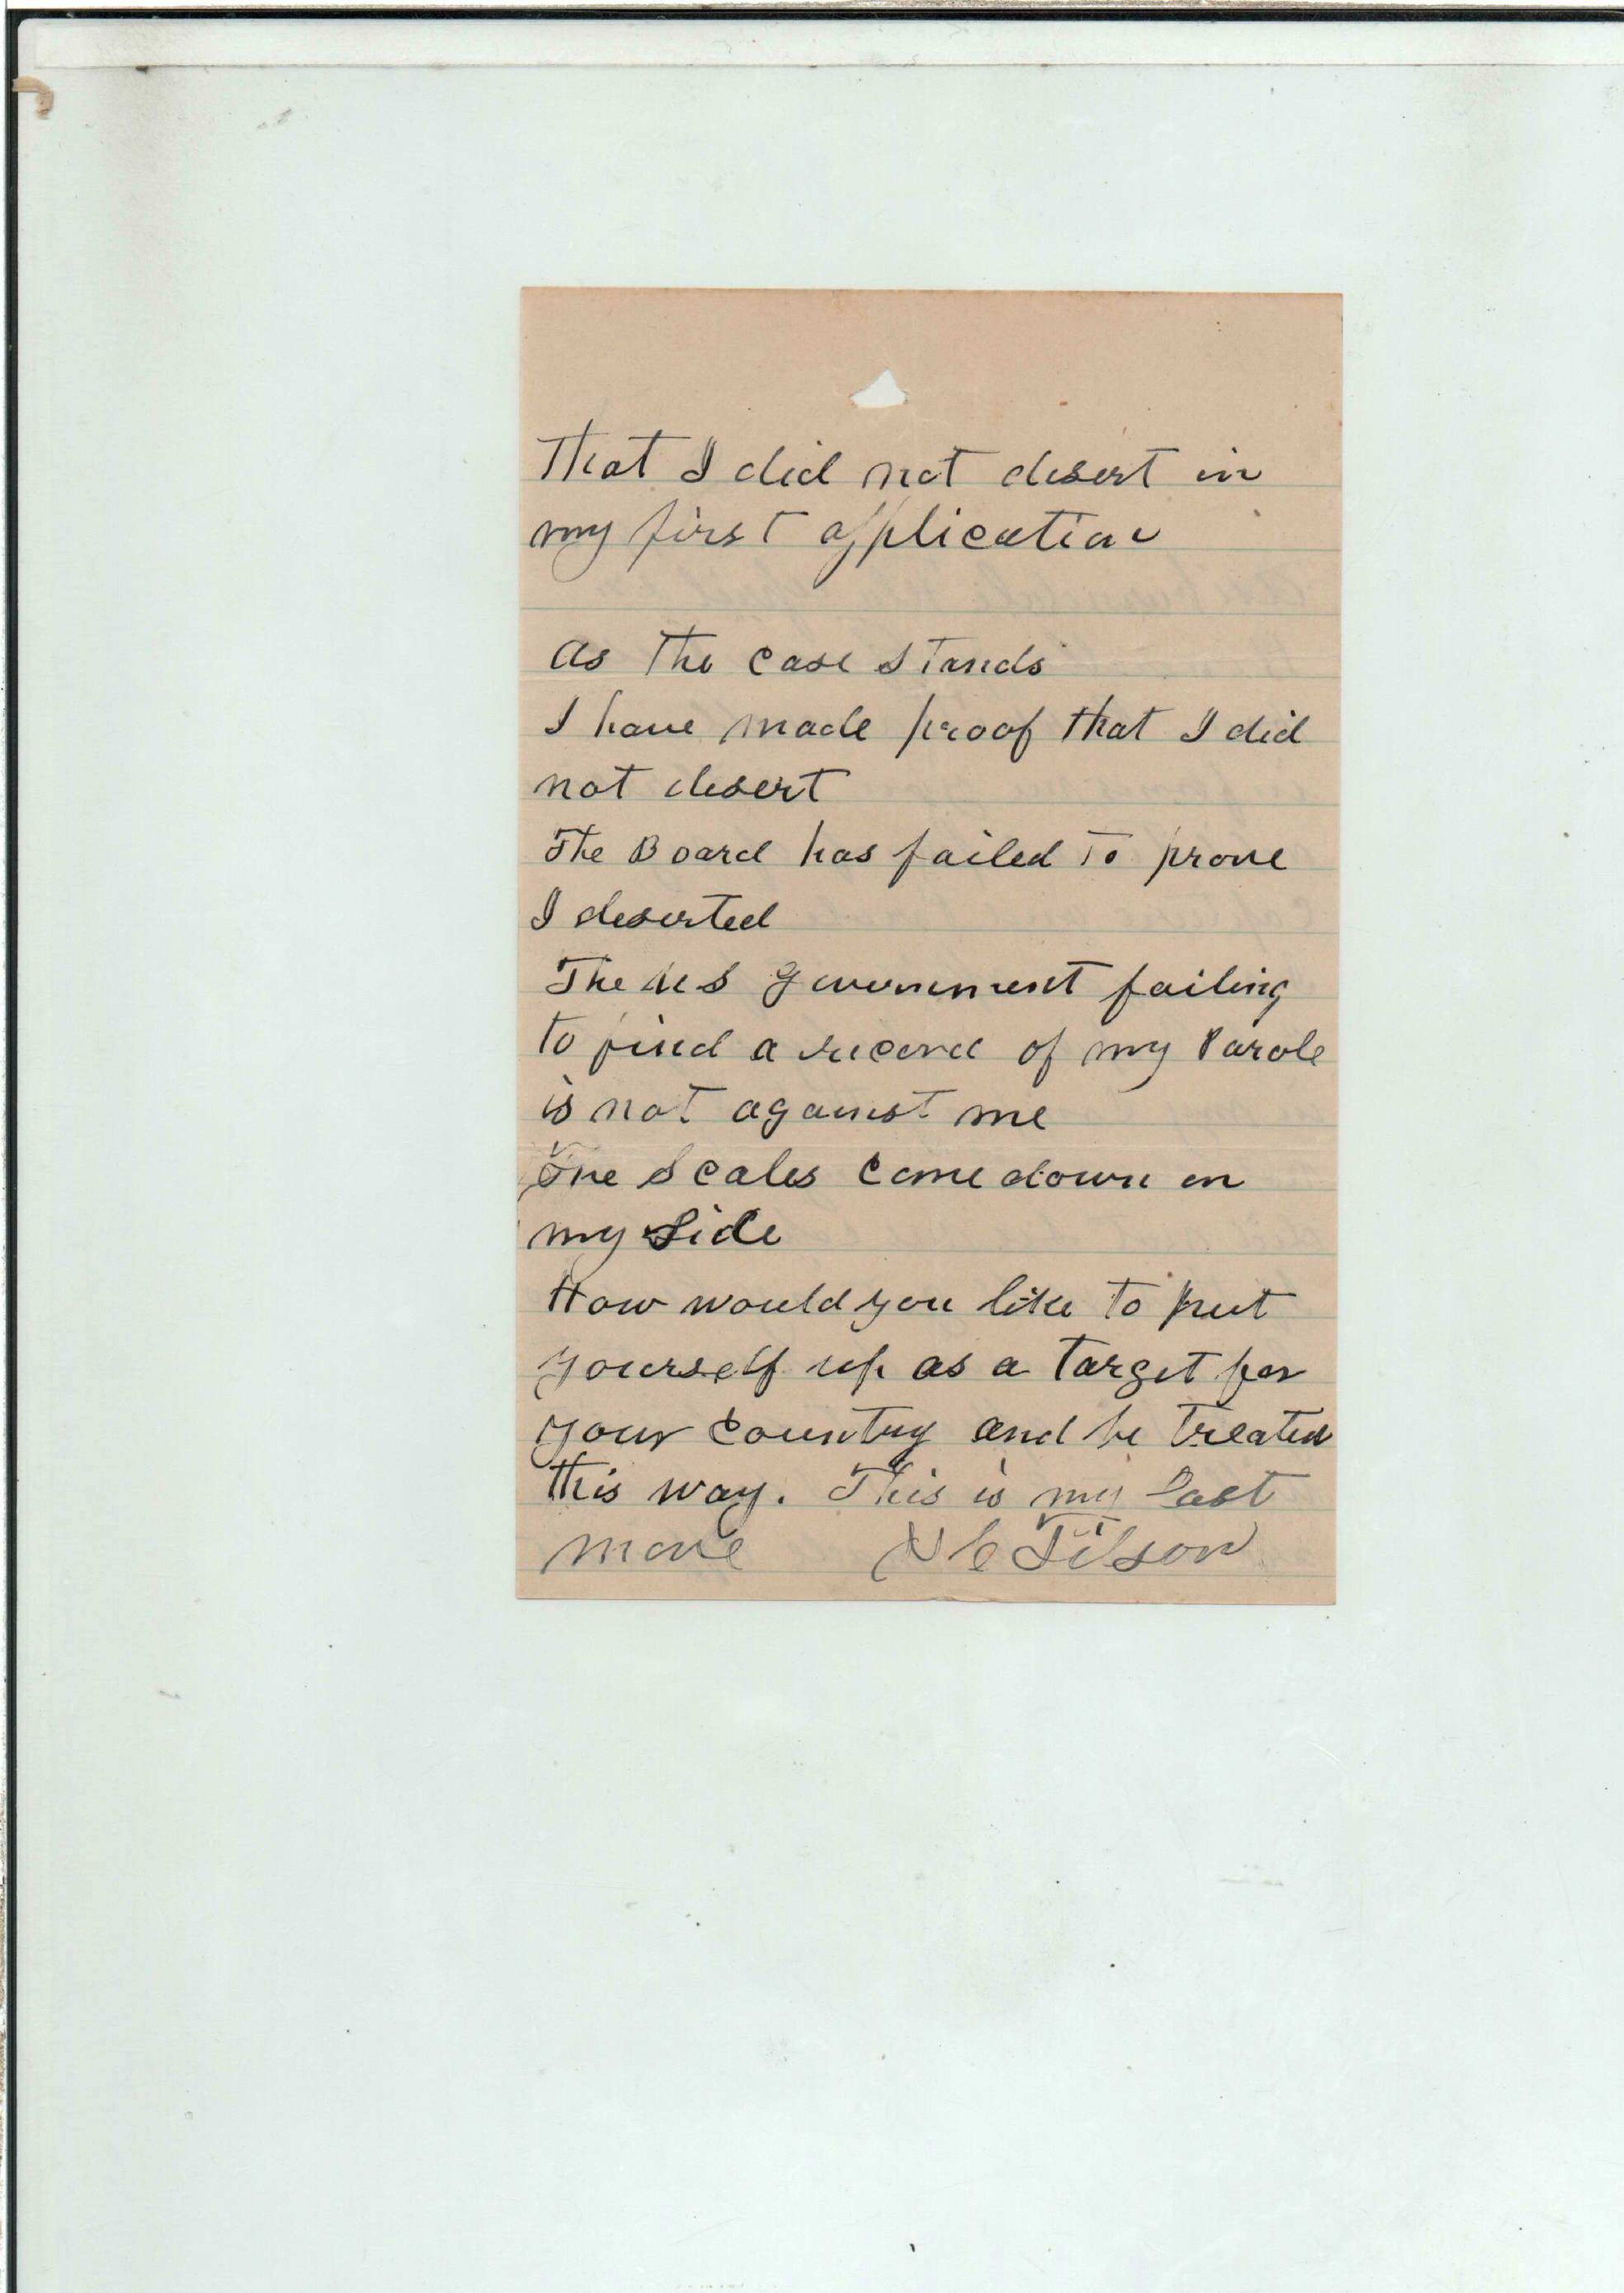 That I did not desert in
my first application
As the case stands
I have made proof that I did
not desert
The Board has failed to prove
I deserted
The US Government failing
to find a record of my Parole
is not against me
The Scales come down on
my Side
How would you like to put
yourself up as a target for
your country and be treated
this way. This is my last
move Tilson